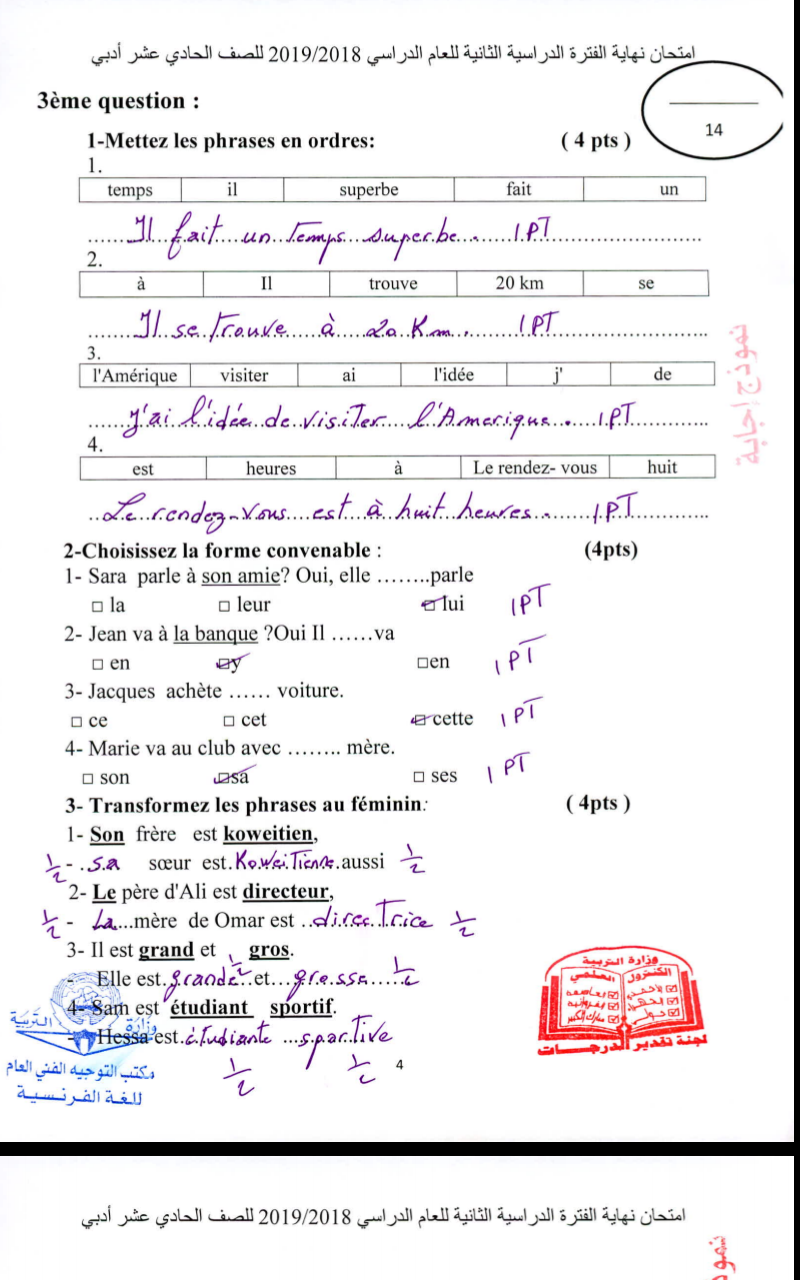 امتحان نهاية الفترة الدراسية الثانية للعام الدراسي 2019/2018 للصف الحادي عشر أدبي
3ème question :
14
1-Mettez les phrases en ordres: ( 4 pts )
1.
temps il superbe fait un
Il fait un temps superbe. 1PT
2.
à Il trouve 20 km se
Il se trouve à 20 Km. 1PT
3.
l'Amérique visiter ai l'idée j' de
J'ai l'idée de visiter l'Amerique. 1PT
4.
est heures à Le rendez- vous huit
Le rendez-vous est à huit heures. 1PT
نموذج إجابة
2-Choisissez la forme convenable : (4pts)
1- Sara parle à son amie? Oui, elle ........parle
□ la □ leur □ lui 1PT
2- Jean va à la banque ?Oui Il ......va
□ en □y □en 1PT
3- Jacques achète ...... voiture.
□ ce □ cet □ cette 1PT
4- Marie va au club avec ........ mère.
□ son □sa □ ses 1PT
3- Transformez les phrases au féminin: ( 4pts )
1- Son frère est koweitien,
½ - .sa sœur est.Koweitienne.aussi ½
2- Le père d'Ali est directeur,
½ - La...mère de Omar est ..directrice ½
3- Il est grand et gros.
- Elle est.grande..et...grosse..... ½
4- Sam est étudiant sportif.
- Hessa est.étudiante ...sportive
½ ½
4
وزارة التربية
مكتب التوجيه الفني العام
للغة الفرنسية
وزارة التربية
الكنترول العلمي
لجنة تقدير الدرجات
امتحان نهاية الفترة الدراسية الثانية للعام الدراسي 2019/2018 للصف الحادي عشر أدبي